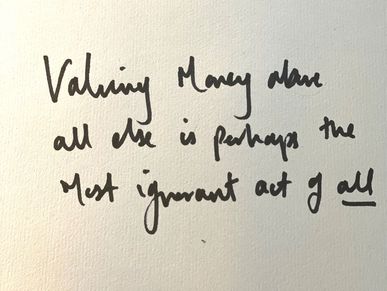 Valuing Money above
all else is perhaps the
Most ignorant act of all